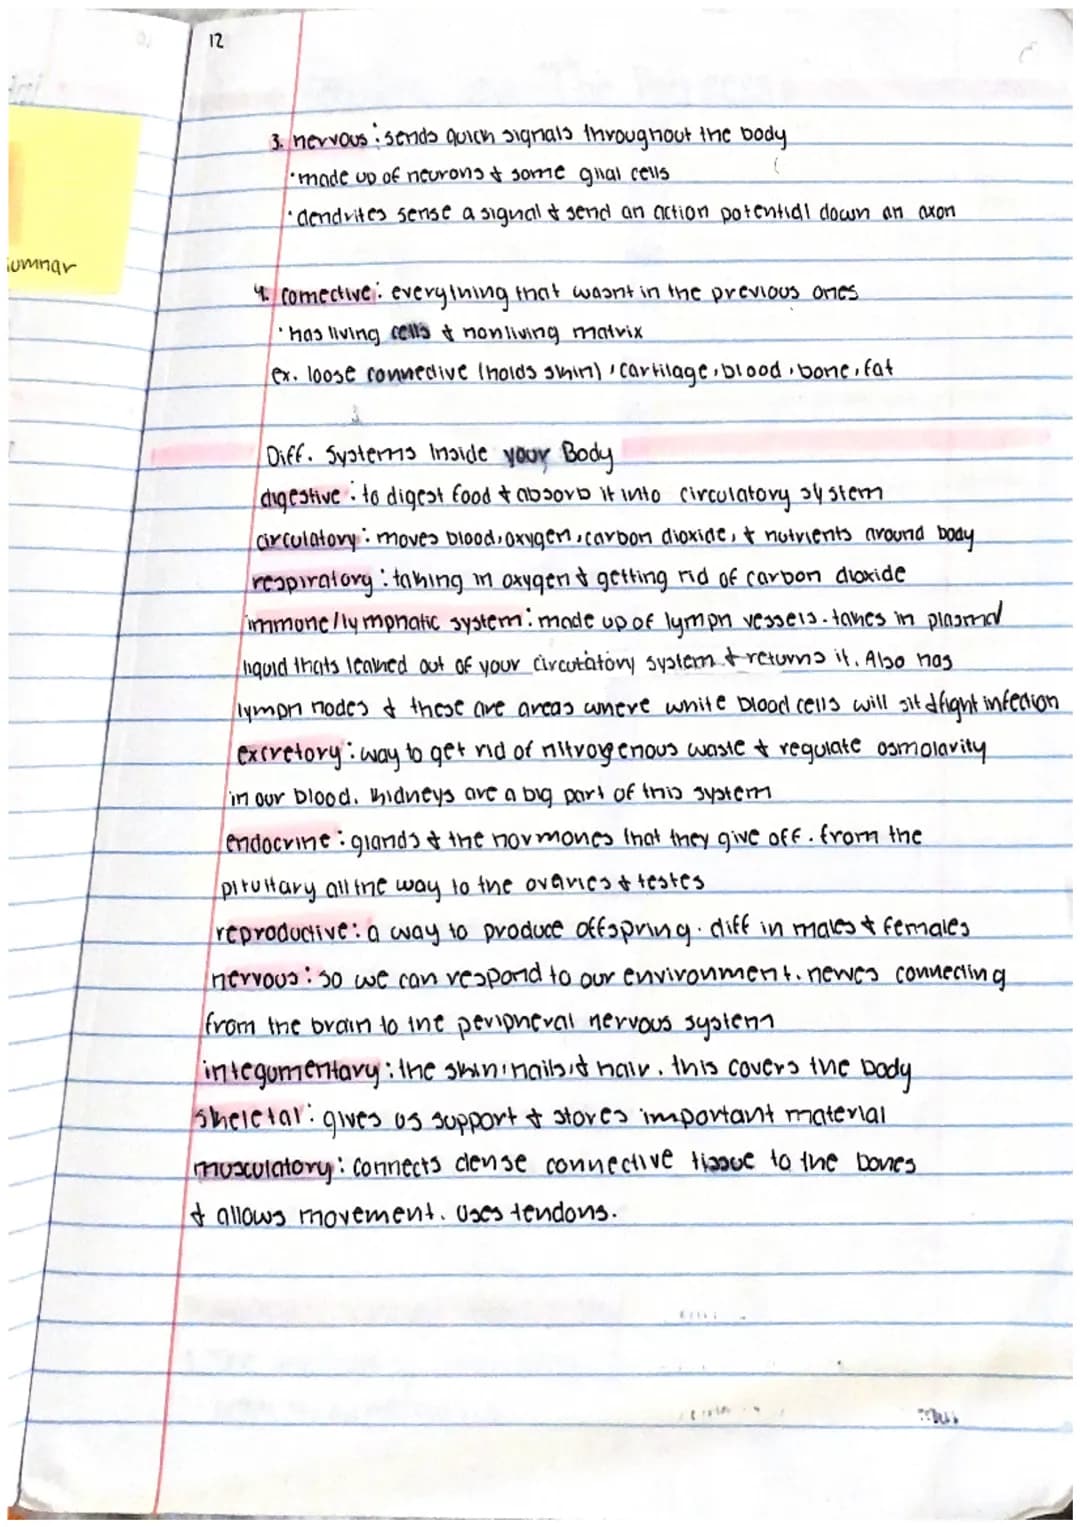 12
3. nervous: sends quick signals throughout the body
· made up of neurons & some glial cells
· dendrites sense a signal & send an action potential down an axon
4. connective: everything that wasnt in the previous ones
· has living cells & nonliving matrix
ex. loose connective (holds skin), cartilage, blood, bone, fat
Diff. Systems Inside your Body
digestive: to digest food & absorb it into circulatory system
circulatory: moves blood, oxygen, carbon dioxide, & nutrients around body
respiratory: taking in oxygen & getting rid of carbon dioxide
immone/lymphatic system: made up of lymph vessels. takes in plasma/
liquid thats leaked out of your circulatory system & returns it. Also has
lymph nodes & these are areas where white blood cells will sit & fight infection
excretory: way to get rid of nitrogenous waste & regulate osmolarity
in our blood. kidneys are a big part of this system
endocrine: glands & the hormones that they give off. from the
pituitary all the way to the ovaries & testes
reproductive: a way to produce offspring. diff in males & females
nervous: so we can respond to our environment. nerves connecting
from the brain to the peripheral nervous system
integumentary: the skin, nails, & hair. this covers the body
skeletal: gives us support & stores important material
musculatory: connects dense connective tissue to the bones
& allows movement. Uses tendons.